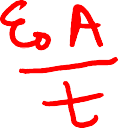 ε₀ A
t